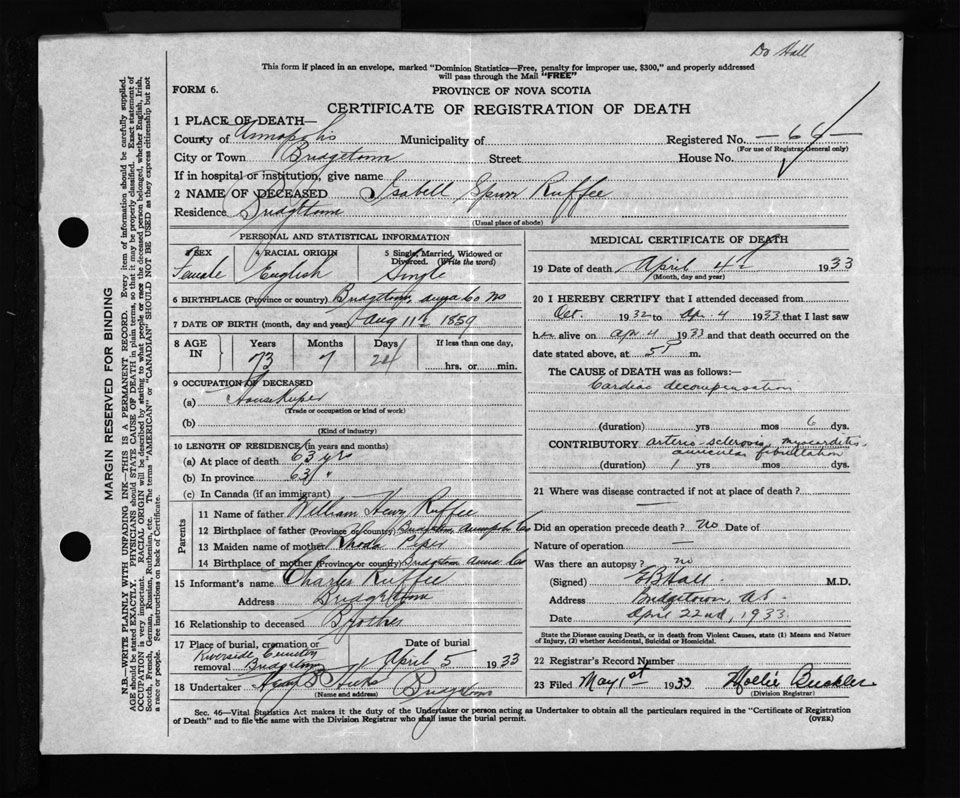 Do Hall
This form if placed in an envelope, marked "Dominion Statistics—Free, penalty for improper use, $300," and properly addressed
will pass through the Mail "FREE"
FORM 6.
PROVINCE OF NOVA SCOTIA
CERTIFICATE OF REGISTRATION OF DEATH
1 PLACE OF DEATH—
County of Annapolis Municipality of Registered No. 64
(For use of Registrar General only)
City or Town Bridgetown Street House No.
If in hospital or institution, give name
2 NAME OF DECEASED Isabell Spurr Ruffee
Residence Bridgetown
(Usual place of abode)
PERSONAL AND STATISTICAL INFORMATION
3 SEX 4 RACIAL ORIGIN 5 Single, Married, Widowed or Divorced. (Write the word)
Female English Single
6 BIRTHPLACE (Province or country) Bridgetown, Co NS
7 DATE OF BIRTH (month, day and year) Aug 11th 1859
8 AGE IN Years Months Days If less than one day,
73 7 24 hrs. or min.
9 OCCUPATION OF DECEASED
(a) Housekeeper
(Trade or occupation or kind of work)
(b)
(Kind of industry)
10 LENGTH OF RESIDENCE (in years and months)
(a) At place of death 63 yrs
(b) In province 63 "
(c) In Canada (if an immigrant)
Parents
11 Name of father William Henry Ruffee
12 Birthplace of father (Province or country) Bridgetown Co
13 Maiden name of mother Rhoda Piper
14 Birthplace of mother (Province or country) Bridgetown Anna. Co
15 Informant's name Charles Ruffee
Address Bridgetown
16 Relationship to deceased Brother
17 Place of burial, cremation or removal Date of burial
Riverside Cemetery
Bridgetown April 5 1933
18 Undertaker Hicks Bridgetown
(Name and address)
MEDICAL CERTIFICATE OF DEATH
19 Date of death April 4th 1933
(Month, day and year)
20 I HEREBY CERTIFY that I attended deceased from
Oct. 1932 to Apr. 4 1933 that I last saw
her alive on apr. 4 1933 and that death occurred on the
date stated above, at m.
The CAUSE of DEATH was as follows:—
Cardiac decompensation
(duration) yrs mos 6 dys.
CONTRIBUTORY arterio-sclerosis, myocarditis,
auricular fibrillation
(duration) 1 yrs mos. dys.
21 Where was disease contracted if not at place of death?
Did an operation precede death? no Date of
Nature of operation —
Was there an autopsy? no
(Signed) Hall. M.D.
Address Bridgetown,
Date April 22nd, 1933.
State the Disease causing Death, or in death from Violent Causes, state (1) Means and Nature
of Injury, (2) whether Accidental, Suicidal or Homicidal.
22 Registrar's Record Number
23 Filed May 1st 1933 Buckler
(Division Registrar)
Sec. 46—Vital Statistics Act makes it the duty of the Undertaker or person acting as Undertaker to obtain all the particulars required in the "Certificate of Registration
of Death" and to file the same with the Division Registrar who shall issue the burial permit.
(OVER)
MARGIN RESERVED FOR BINDING
N.B.—WRITE PLAINLY WITH UNFADING INK—THIS IS A PERMANENT RECORD. Every item of information should be carefully supplied.
AGE should be stated EXACTLY. PHYSICIANS should STATE CAUSE OF DEATH in plain terms, so that it may be properly classified. Exact statement of
OCCUPATION is very important. RACIAL ORIGIN will be described by stating to what people or race the deceased person belonged, whether English, Irish,
Scotch, French, German, Russian, Ruthenian, etc. The terms "AMERICAN" or "CANADIAN" SHOULD NOT BE USED as they express citizenship but not
a race or people. See instructions on back of Certificate.